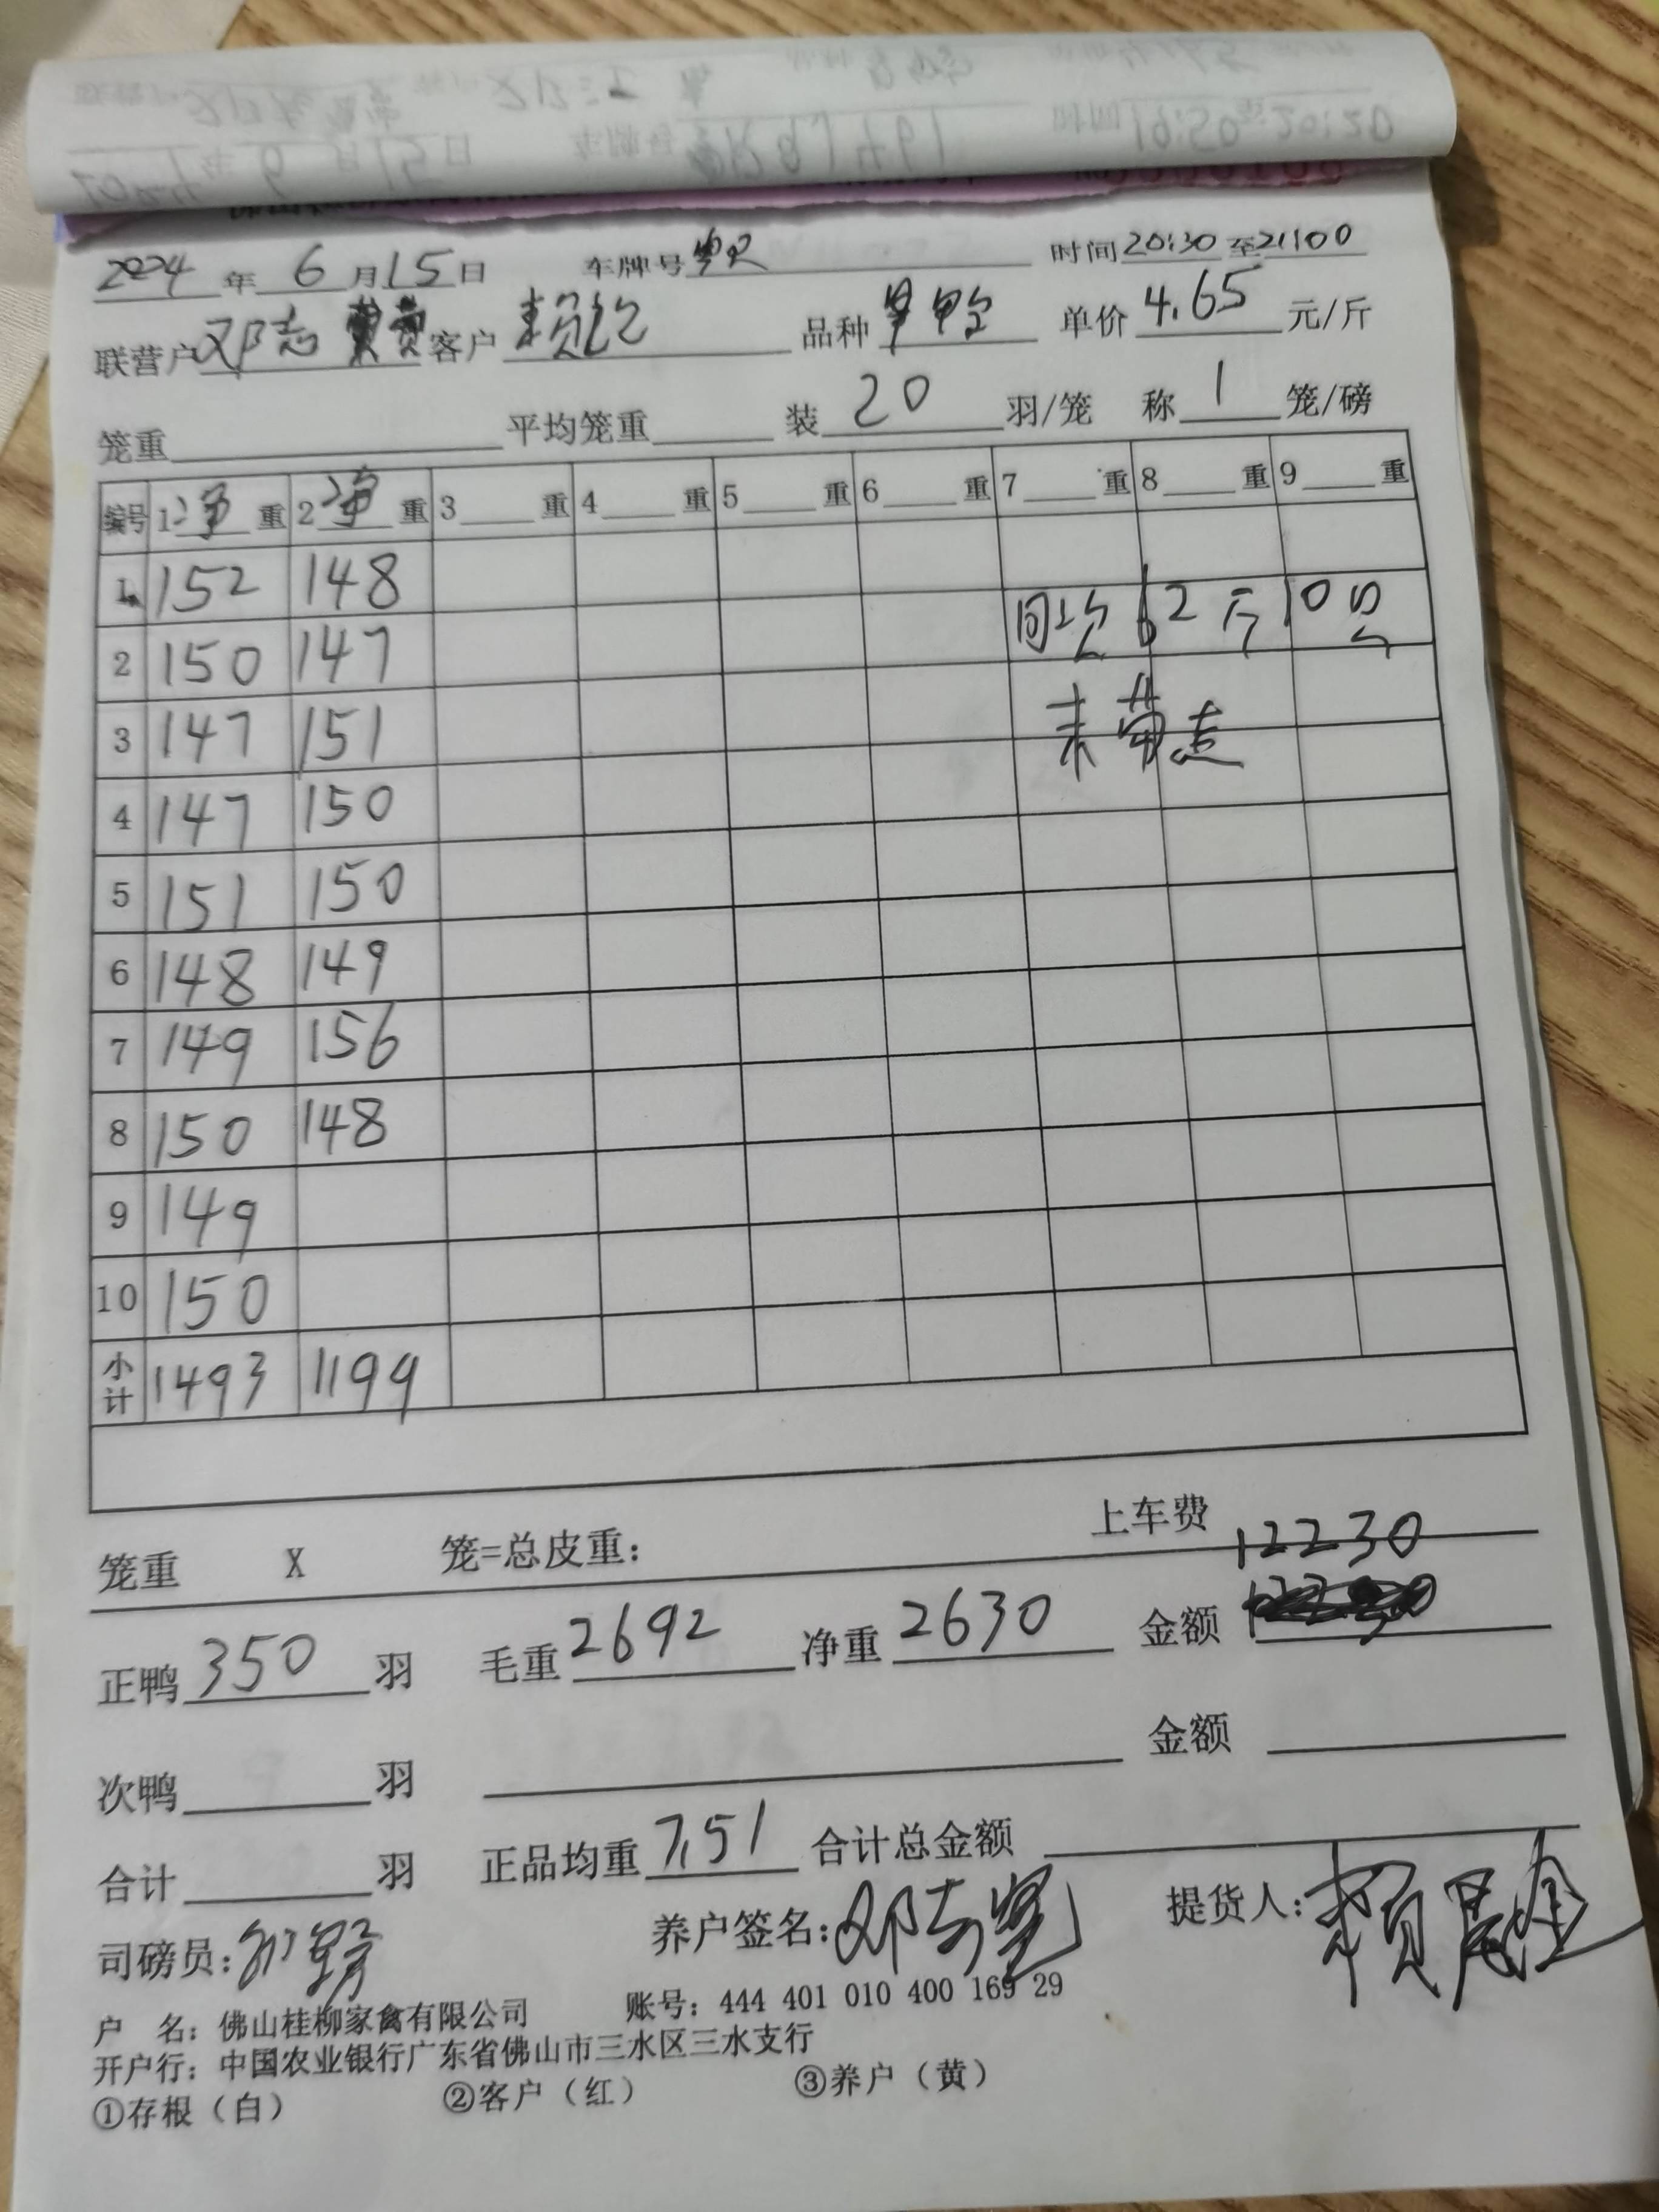 2024年6月15日 车牌号 时间20:30至21:00
联营户邓志 客户赖 品种 单价4.65元/斤
笼重 平均笼重 装20羽/笼 称1笼/磅
编号 1净重 2净重 3重 4重 5重 6重 7重 8重 9重
1 152 148
2 150 147 回次62斤10只
3 147 151 未带走
4 147 150
5 151 150
6 148 149
7 149 156
8 150 148
9 149
10 150
小计 1493 1199
笼重 X 笼=总皮重: 上车费
12230
正鸭350羽 毛重2692 净重2630 金额
次鸭 羽 金额
合计 羽 正品均重7.51 合计总金额
司磅员: 养户签名:邓志 提货人:赖
户 名:佛山桂柳家禽有限公司 账号:444 401 010 400 169 29
开户行:中国农业银行广东省佛山市三水区三水支行
①存根(白) ②客户(红) ③养户(黄)